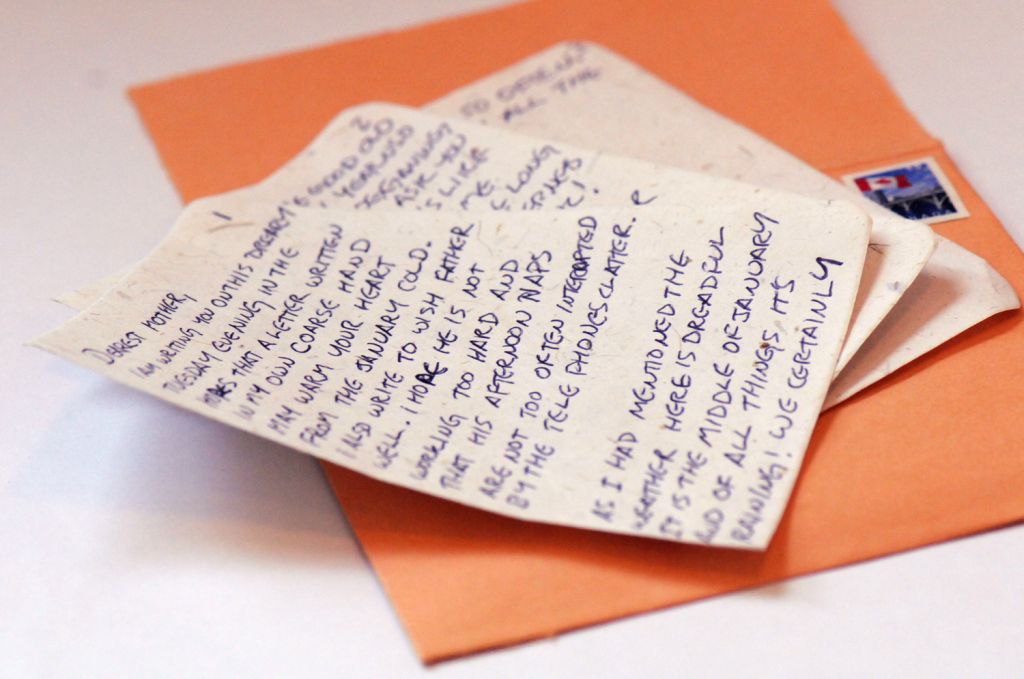 1
DEAREST MOTHER,
I AM WRITING YOU ON THIS DREARY
TUESDAY EVENING IN THE
THAT A LETTER WRITTEN
IN MY OWN COARSE HAND
MAY WARM YOUR HEART
FROM THE JANUARY COLD.
I ALSO WRITE TO WISH FATHER
WELL. I HOPE HE IS NOT
WORKING TOO HARD AND
THAT HIS AFTERNOON NAPS
ARE NOT TOO OFTEN INTERRUPTED
BY THE TELEPHONES CLATTER.
AS I HAD MENTIONED THE
WEATHER HERE IS DREADFUL
IT IS THE MIDDLE OF JANUARY
AND OF ALL THINGS ITS
RAINING! WE CERTAINLY
2
GOOD OLD
ASK YOU
LIKE
ME
LONG
ALL THE